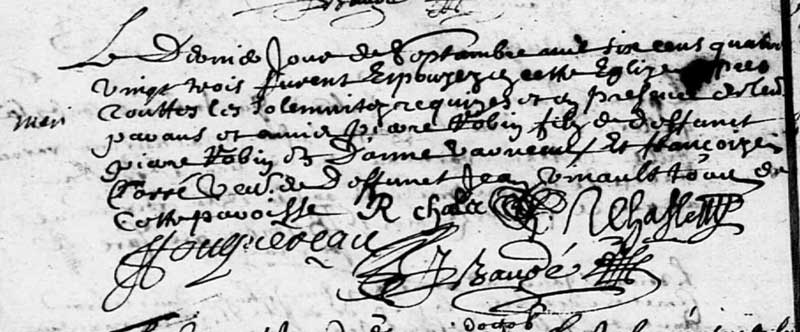 Le Dernier Jour de Septembre mil six cens quatre
vingt trois furent Espousez en cette Eglize apres
mari
touttes les solemnitez requizes et en presence de leurs
parans et amis piere Robin filz de deffunct
piare Robin et D'anne et francoize
veufve de deffunct Jean tous de
cette paroisse R
Fouquereau
Baudé
octob